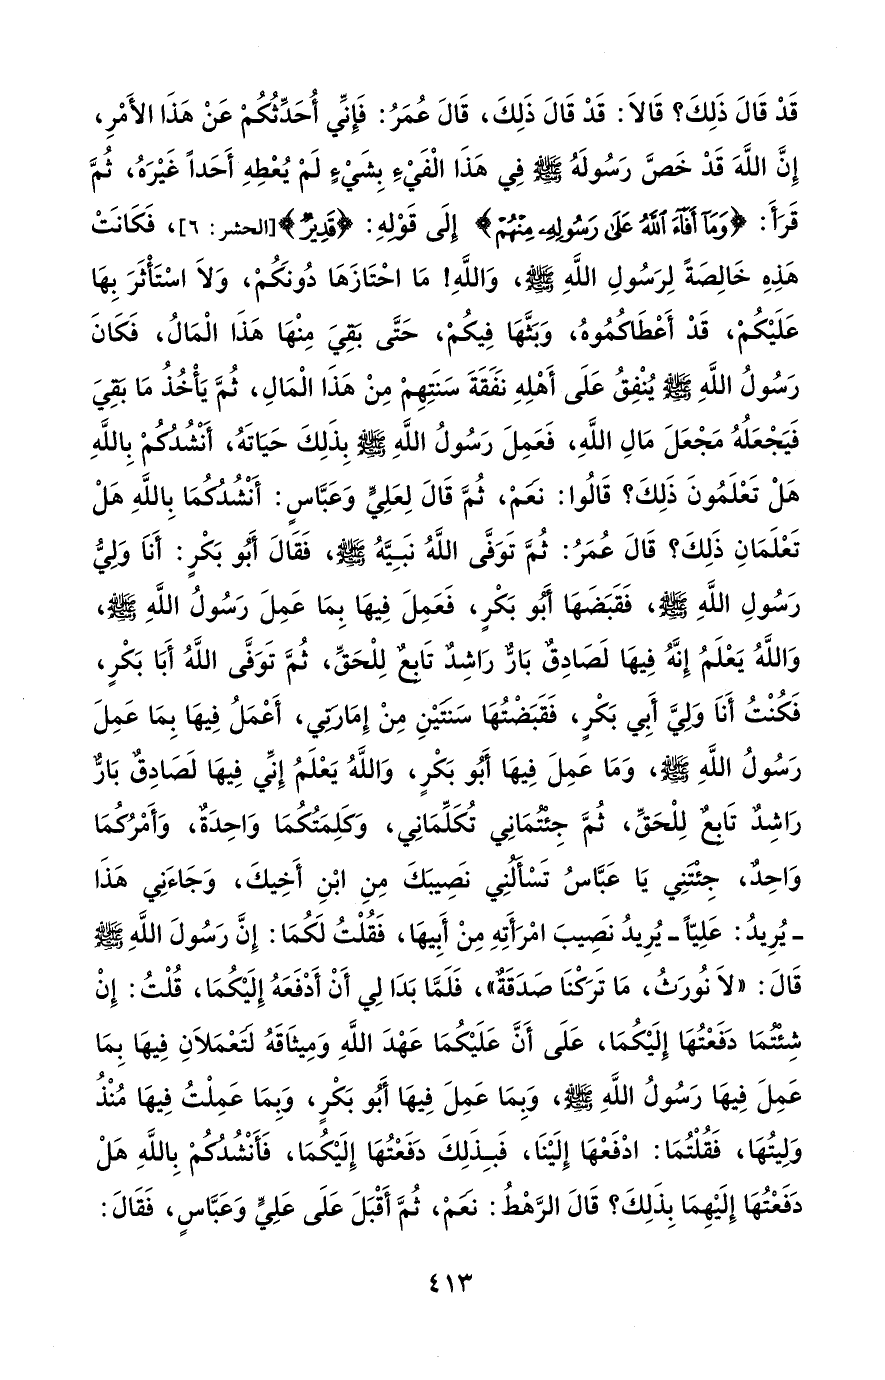 قَدْ قَالَ ذَلِكَ؟ قَالاَ: قَدْ قَالَ ذَلِكَ، قَالَ عُمَرُ: فَإِنِّي أُحَدِّثُكُمْ عَنْ هَذَا الأَمْرِ،
إِنَّ اللَّهَ قَدْ خَصَّ رَسُولَهُ ﷺ فِي هَذَا الْفَيْءِ بِشَيْءٍ لَمْ يُعْطِهِ أَحَداً غَيْرَهُ، ثُمَّ
قَرَأَ: ﴿وَمَآ أَفَآءَ ٱللَّهُ عَلَىٰ رَسُولِهِۦ مِنْهُمْ﴾ إِلَى قَوْلِهِ: ﴿قَدِيرٌ﴾ [الحشر: ٦]، فَكَانَتْ
هَذِهِ خَالِصَةً لِرَسُولِ اللَّهِ ﷺ، وَاللَّهِ! مَا احْتَازَهَا دُونَكُمْ، وَلاَ اسْتَأْثَرَ بِهَا
عَلَيْكُمْ، قَدْ أَعْطَاكُمُوهُ، وَبَثَّهَا فِيكُمْ، حَتَّى بَقِيَ مِنْهَا هَذَا الْمَالُ، فَكَانَ
رَسُولُ اللَّهِ ﷺ يُنْفِقُ عَلَى أَهْلِهِ نَفَقَةَ سَنَتِهِمْ مِنْ هَذَا الْمَالِ، ثُمَّ يَأْخُذُ مَا بَقِيَ
فَيَجْعَلُهُ مَجْعَلَ مَالِ اللَّهِ، فَعَمِلَ رَسُولُ اللَّهِ ﷺ بِذَلِكَ حَيَاتَهُ، أَنْشُدُكُمْ بِاللَّهِ
هَلْ تَعْلَمُونَ ذَلِكَ؟ قَالُوا: نَعَمْ، ثُمَّ قَالَ لِعَلِيٍّ وَعَبَّاسٍ: أَنْشُدُكُمَا بِاللَّهِ هَلْ
تَعْلَمَانِ ذَلِكَ؟ قَالَ عُمَرُ: ثُمَّ تَوَفَّى اللَّهُ نَبِيَّهُ ﷺ، فَقَالَ أَبُو بَكْرٍ: أَنَا وَلِيُّ
رَسُولِ اللَّهِ ﷺ، فَقَبَضَهَا أَبُو بَكْرٍ، فَعَمِلَ فِيهَا بِمَا عَمِلَ رَسُولُ اللَّهِ ﷺ،
وَاللَّهُ يَعْلَمُ إِنَّهُ فِيهَا لَصَادِقٌ بَارٌّ رَاشِدٌ تَابِعٌ لِلْحَقِّ، ثُمَّ تَوَفَّى اللَّهُ أَبَا بَكْرٍ،
فَكُنْتُ أَنَا وَلِيَّ أَبِي بَكْرٍ، فَقَبَضْتُهَا سَنَتَيْنِ مِنْ إِمَارَتِي، أَعْمَلُ فِيهَا بِمَا عَمِلَ
رَسُولُ اللَّهِ ﷺ، وَمَا عَمِلَ فِيهَا أَبُو بَكْرٍ، وَاللَّهُ يَعْلَمُ إِنِّي فِيهَا لَصَادِقٌ بَارٌّ
رَاشِدٌ تَابِعٌ لِلْحَقِّ، ثُمَّ جِئْتُمَانِي تُكَلِّمَانِي، وَكَلِمَتُكُمَا وَاحِدَةٌ، وَأَمْرُكُمَا
وَاحِدٌ، جِئْتَنِي يَا عَبَّاسُ تَسْأَلُنِي نَصِيبَكَ مِنِ ابْنِ أَخِيكَ، وَجَاءَنِي هَذَا
ـ يُرِيدُ: عَلِيّاً ـ يُرِيدُ نَصِيبَ امْرَأَتِهِ مِنْ أَبِيهَا، فَقُلْتُ لَكُمَا: إِنَّ رَسُولَ اللَّهِ ﷺ
قَالَ: «لاَ نُورَثُ، مَا تَرَكْنَا صَدَقَةٌ»، فَلَمَّا بَدَا لِي أَنْ أَدْفَعَهُ إِلَيْكُمَا، قُلْتُ: إِنْ
شِئْتُمَا دَفَعْتُهَا إِلَيْكُمَا، عَلَى أَنَّ عَلَيْكُمَا عَهْدَ اللَّهِ وَمِيثَاقَهُ لَتَعْمَلاَنِ فِيهَا بِمَا
عَمِلَ فِيهَا رَسُولُ اللَّهِ ﷺ، وَبِمَا عَمِلَ فِيهَا أَبُو بَكْرٍ، وَبِمَا عَمِلْتُ فِيهَا مُنْذُ
وَلِيتُهَا، فَقُلْتُمَا: ادْفَعْهَا إِلَيْنَا، فَبِذَلِكَ دَفَعْتُهَا إِلَيْكُمَا، فَأَنْشُدُكُمْ بِاللَّهِ هَلْ
دَفَعْتُهَا إِلَيْهِمَا بِذَلِكَ؟ قَالَ الرَّهْطُ: نَعَمْ، ثُمَّ أَقْبَلَ عَلَى عَلِيٍّ وَعَبَّاسٍ، فَقَالَ:
٤١٣